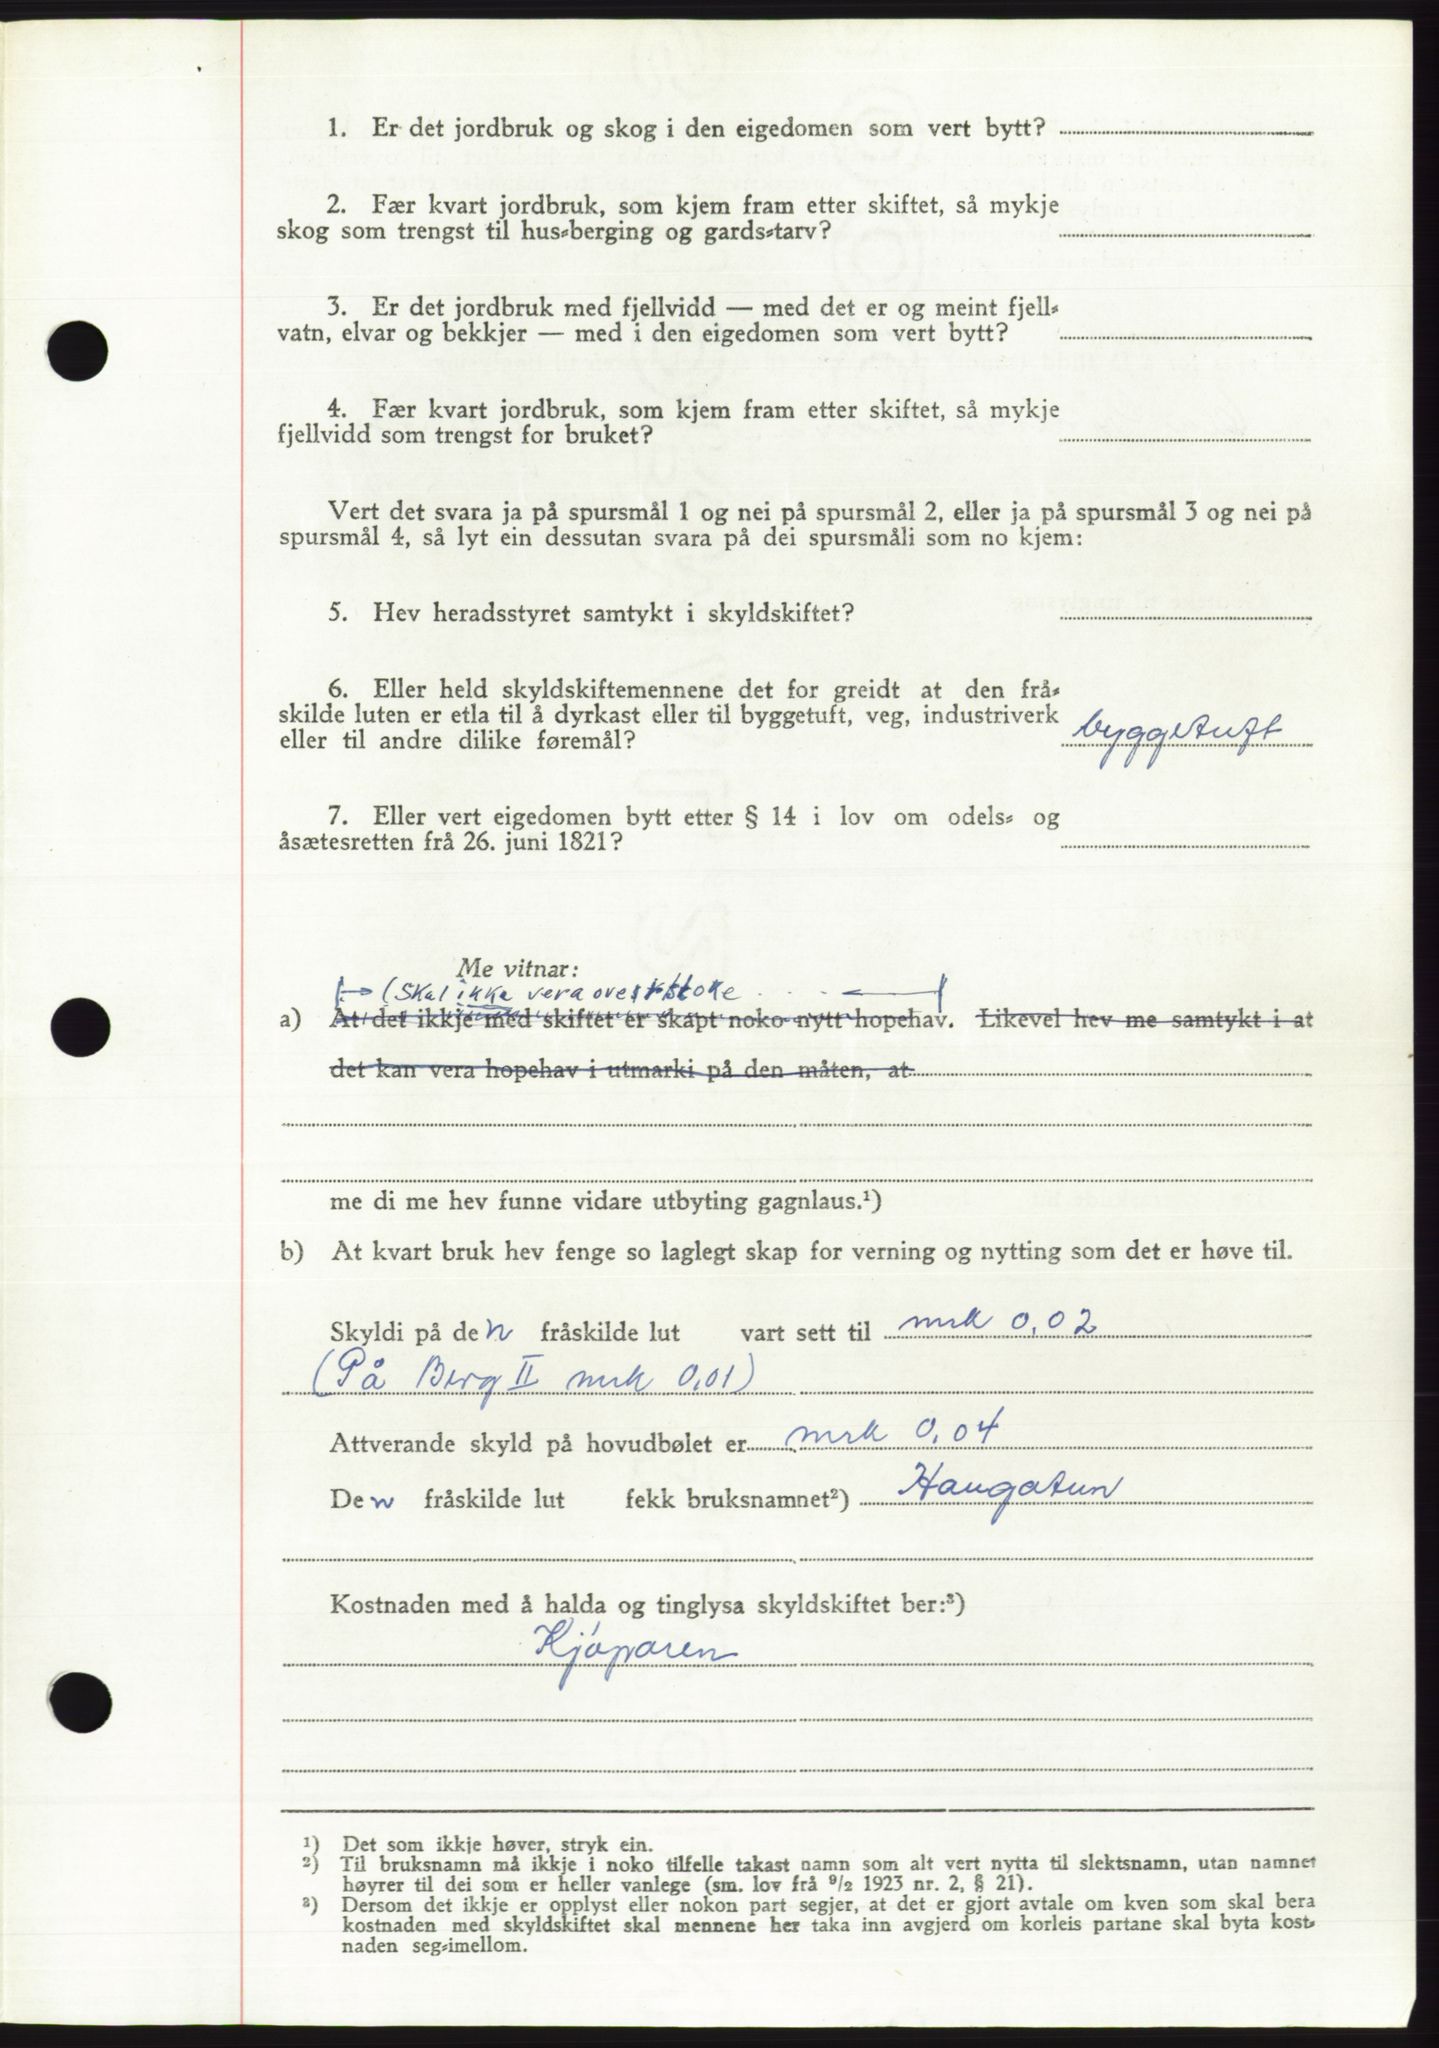 1. Er det jordbruk og skog i den eigedomen som vert bytt?
2. Fær kvart jordbruk, som kjem fram etter skiftet, så mykje
skog som trengst til hus⸗berging og gards⸗tarv?
3. Er det jordbruk med fjellvidd — med det er og meint fjell⸗
vatn, elvar og bekkjer — med i den eigedomen som vert bytt?
4. Fær kvart jordbruk, som kjem fram etter skiftet, så mykje
fjellvidd som trengst for bruket?
Vert det svara ja på spursmål 1 og nei på spursmål 2, eller ja på spursmål 3 og nei på
spursmål 4, så lyt ein dessutan svara på dei spursmåli som no kjem:
5. Hev heradsstyret samtykt i skyldskiftet?
6. Eller held skyldskiftemennene det for greidt at den frå⸗
skilde luten er etla til å dyrkast eller til byggetuft, veg, industriverk
eller til andre dilike føremål? byggetuft
7. Eller vert eigedomen bytt etter § 14 i lov om odels⸗ og
åsætesretten frå 26. juni 1821?
Me vitnar:
(Skal ikke vera overstroke
a) At det ikkje med skiftet er skapt noko nytt hopehav. Likevel hev me samtykt i at
det kan vera hopehav i utmarki på den måten, at
me di me hev funne vidare utbyting gagnlaus.¹)
b) At kvart bruk hev fenge so laglegt skap for verning og nytting som det er høve til.
Skyldi på den fråskilde lut vart sett til mrk 0,02
(På Berg II mrk 0,01)
Attverande skyld på hovudbølet er mrk 0,04
Den fråskilde lut fekk bruksnamnet²) Haugatun
Kostnaden med å halda og tinglysa skyldskiftet ber:³)
Kjøparen
¹) Det som ikkje høver, stryk ein.
²) Til bruksnamn må ikkje i noko tilfelle takast namn som alt vert nytta til slektsnamn, utan namnet
høyrer til dei som er heller vanlege (sm. lov frå ⁹/₂ 1923 nr. 2, § 21).
³) Dersom det ikkje er opplyst eller nokon part segjer, at det er gjort avtale om kven som skal bera
kostnaden med skyldskiftet skal mennene her taka inn avgjerd om korleis partane skal byta kost⸗
naden seg⸗imellom.